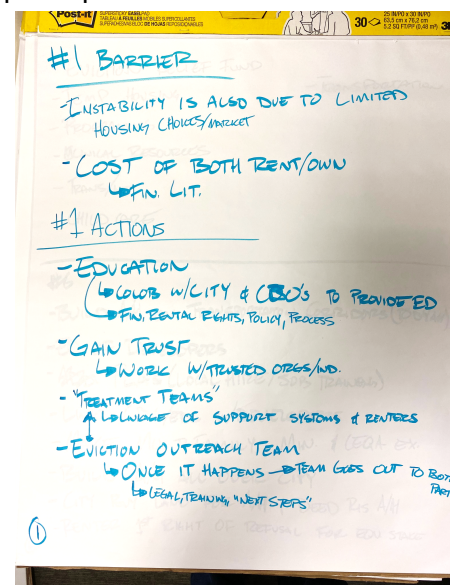 Post-it
SUPERSTICKY EASEL PAD
TABLEAU À FEUILLES MOBILES SUPERCOLLANTES
SUPERADHESIVAS BLOC DE HOJAS REPOSICIONABLES
30
25 IN PO x 30 IN PO
63,5 cm x 76,2 cm
5.2 SQ FT/PP (0,48 m²)
#1 BARRIER
- INSTABILITY IS ALSO DUE TO LIMITED
HOUSING CHOICES/MARKET
- COST OF BOTH RENT/OWN
↳ FIN. LIT.
#1 ACTIONS
- EDUCATION
↳ COLOB W/CITY & CBO'S TO PROVIDE ED
↳ FIN, RENTAL RIGHTS, POLICY, PROCESS
- GAIN TRUST
↳ WORK W/TRUSTED ORGS/IND.
- "TREATMENT TEAMS"
↳ LINKAGE OF SUPPORT SYSTEMS & RENTERS
- EVICTION OUTREACH TEAM
↳ ONCE IT HAPPENS → TEAM GOES OUT TO BOTH
PART
↳ LEGAL, TRAINING, "NEXT STEPS"
1